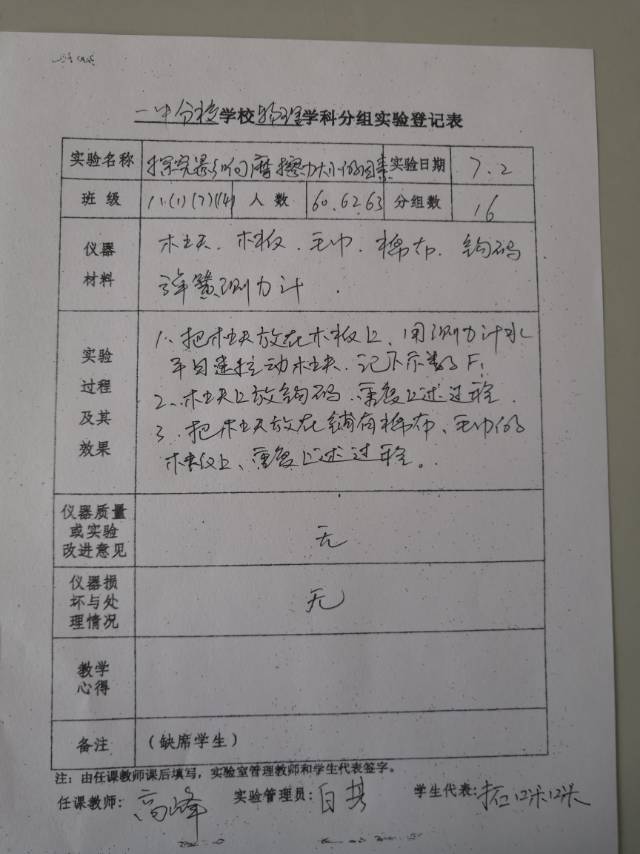 一中分校学校物理学科分组实验登记表
实验名称 探究影响摩擦力大小的因素 实验日期 7.2
班 级 11.(1)(7)(14) 人 数 60.62.63 分组数 16
仪器
材料
木块. 木板. 毛巾. 棉布. 钩码
弹簧测力计.
实验
过程
及其
效果
1. 把木块放在木板上, 用测力计水
平匀速拉动木块. 记下示数F.
2. 木块上放钩码. 重复上述过程.
3. 把木块放在铺有棉布、毛巾的
木板上、重复上述过程。
仪器质量
或实验
改进意见
无
仪器损
坏与处
理情况
无
教学
心得
备注 (缺席学生)
注: 由任课教师课后填写, 实验室管理教师和学生代表签字。
任课教师: 高峰 实验管理员: 白 学生代表: